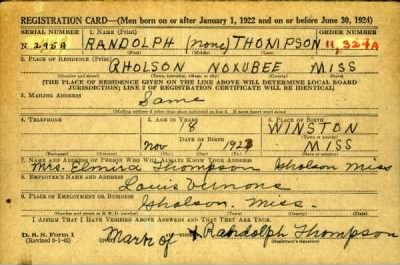 REGISTRATION CARD—(Men born on or after January 1, 1922 and on or before June 30, 1924)
SERIAL NUMBER 1. NAME (Print) ORDER NUMBER
N 295A RANDOLPH (none) THOMPSON 11,324A
2. PLACE OF RESIDENCE (Print)
GHOLSON NOXUBEE MISS
(Town, township, village, or city) (County) (State)
[THE PLACE OF RESIDENCE GIVEN ON THE LINE ABOVE WILL DETERMINE LOCAL BOARD
JURISDICTION; LINE 2 OF REGISTRATION CERTIFICATE WILL BE IDENTICAL]
3. MAILING ADDRESS
Same
[Mailing address if other than place indicated on line 2. If same insert word same]
4. TELEPHONE 5. AGE IN YEARS 6. PLACE OF BIRTH
18 WINSTON
DATE OF BIRTH
Nov 1 1923 MISS
7. NAME AND ADDRESS OF PERSON WHO WILL ALWAYS KNOW YOUR ADDRESS
Mrs. Elmira Thompson Gholson Miss
8. EMPLOYER'S NAME AND ADDRESS
Louis Vernons
9. PLACE OF EMPLOYMENT OR BUSINESS
Gholson. Miss.
I AFFIRM THAT I HAVE VERIFIED ABOVE ANSWERS AND THAT THEY ARE TRUE.
D. S. S. Form 1
(Revised 6-1-42) Mark of X Randolph Thompson
(Registrant's signature)